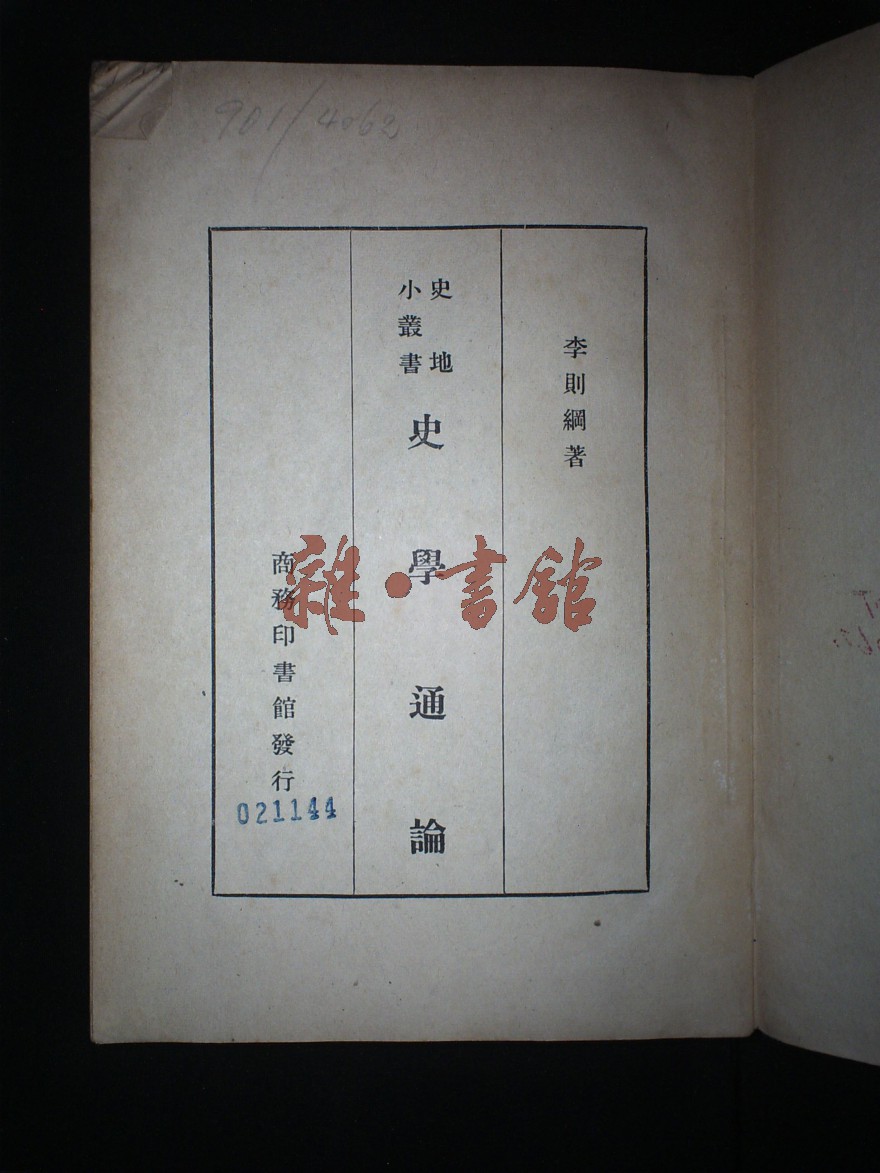 901/4062
李則綱著
史地
小叢書
史學通論
商務印書館發行
021144
雜·書館